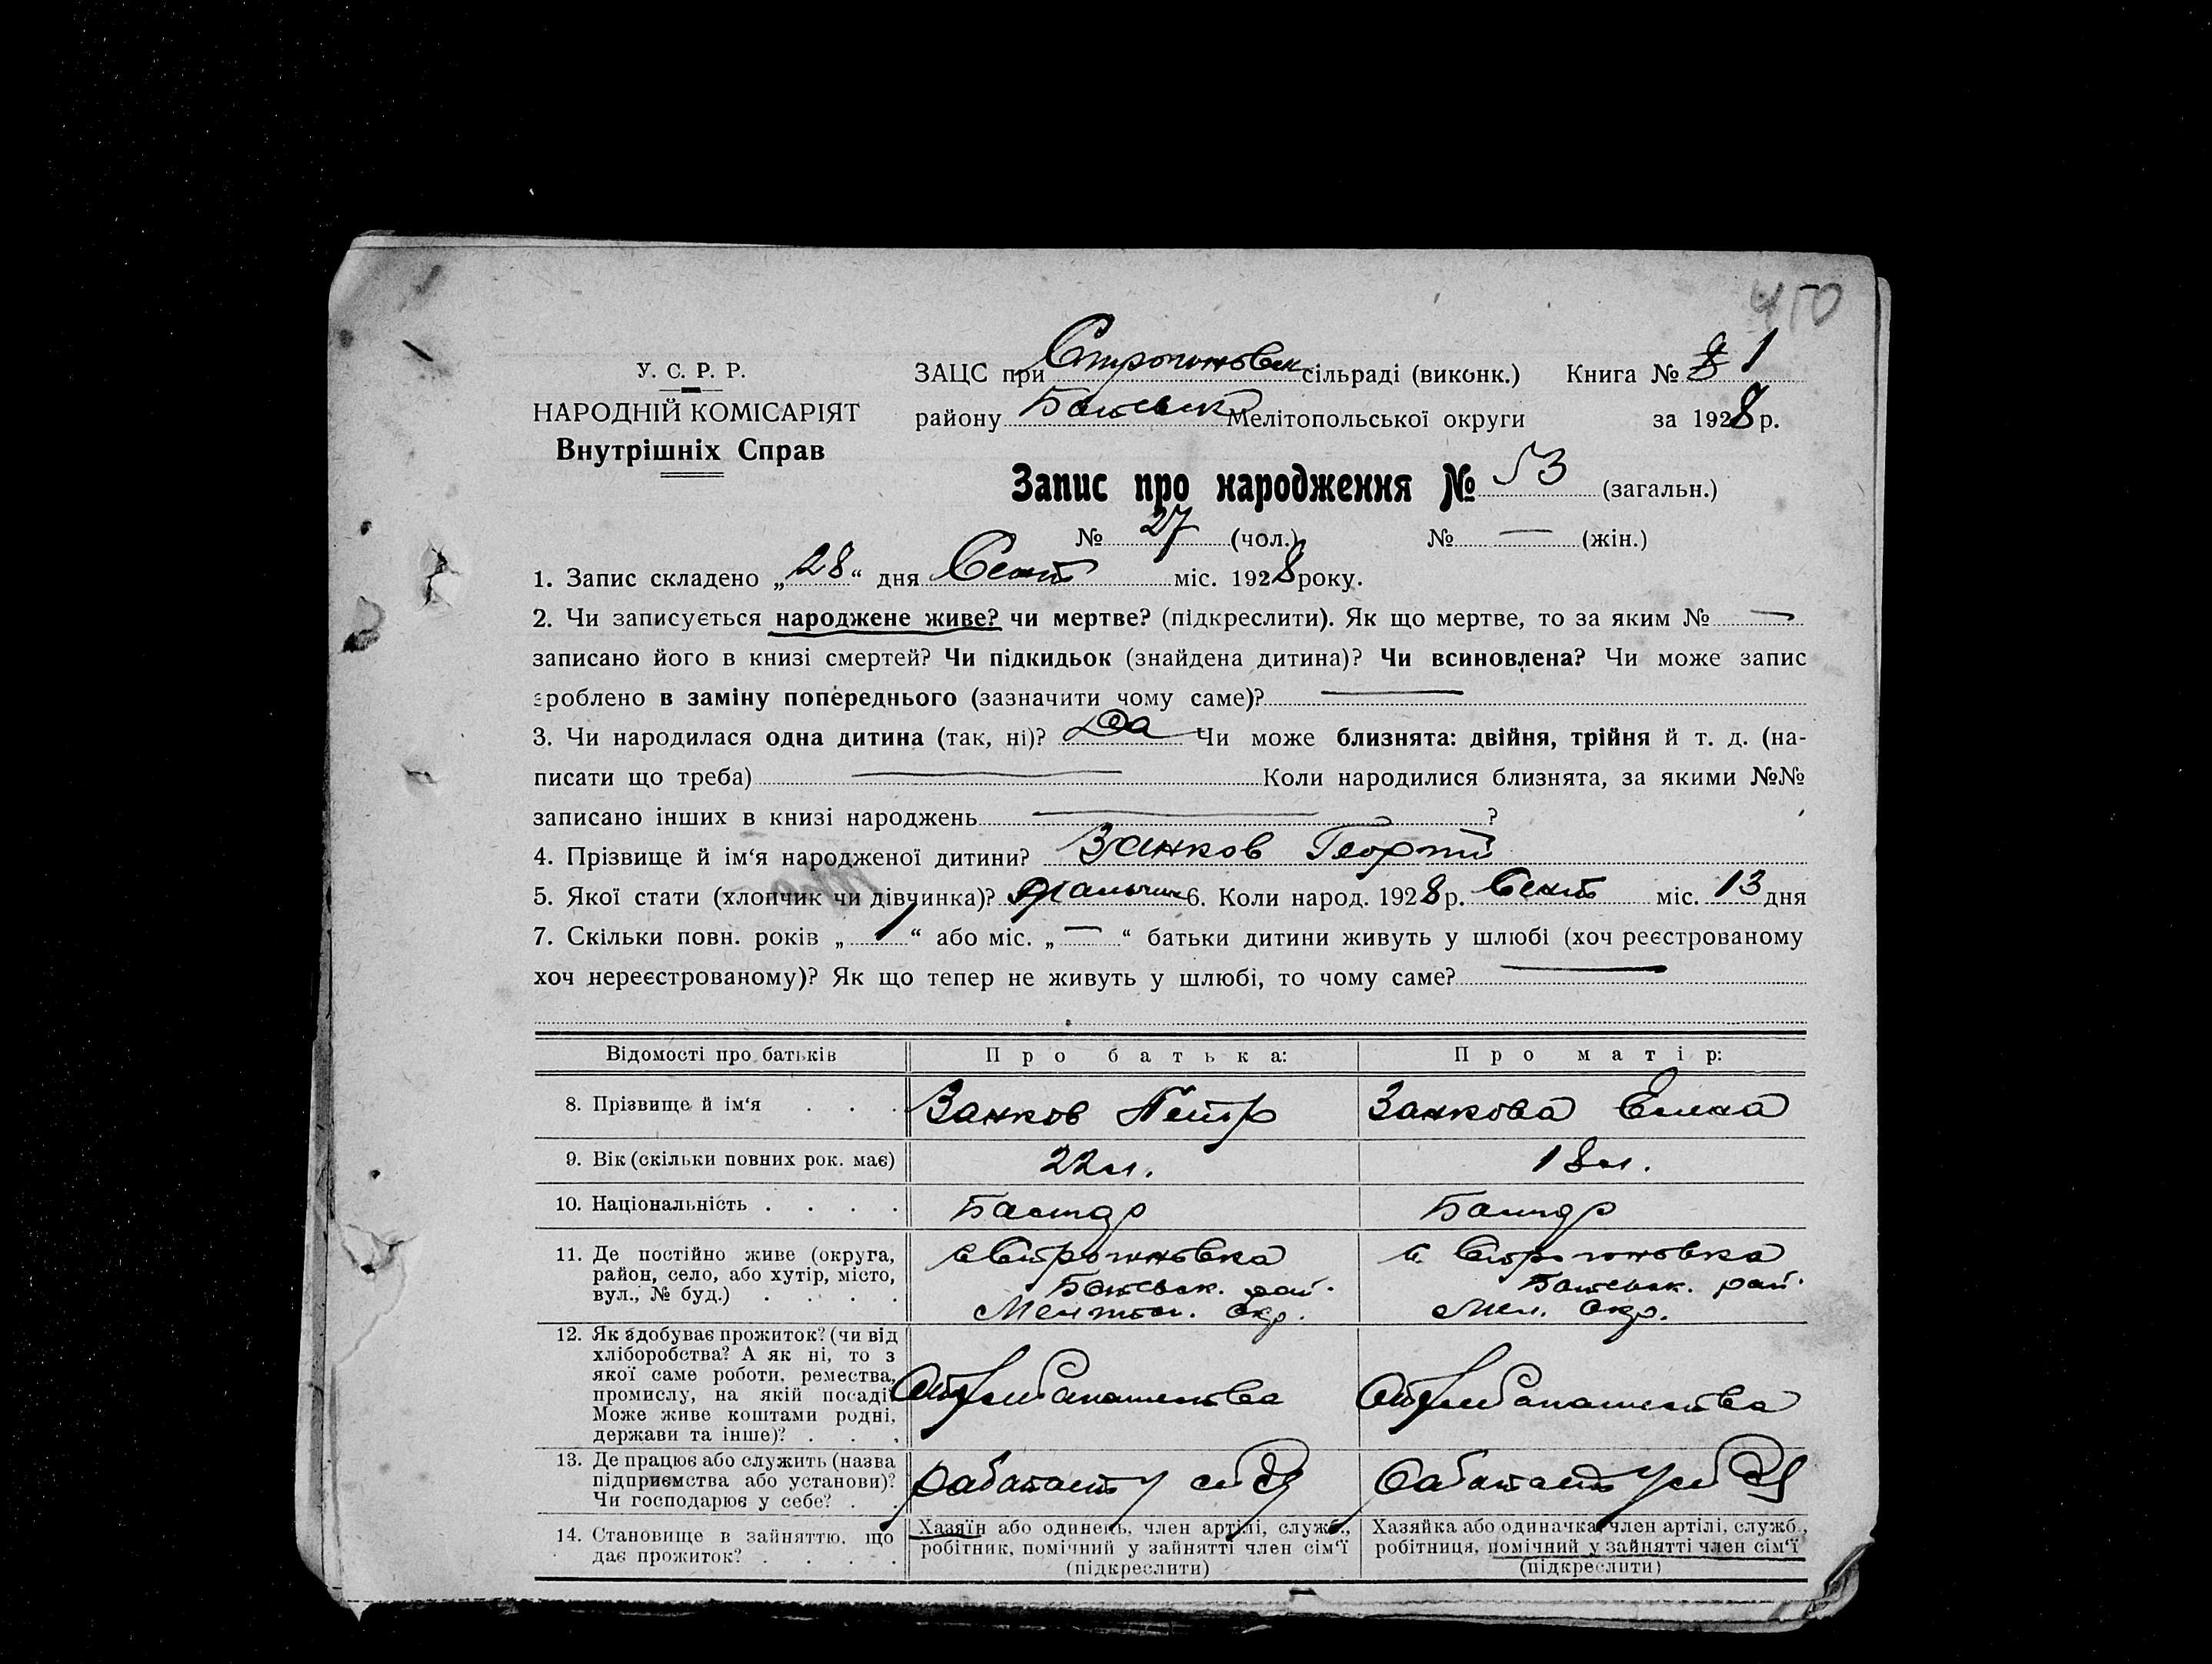 450
У. С. Р. Р.
НАРОДНІЙ КОМІСАРІЯТ
Внутрішніх Справ
ЗАЦС при Строгоновск сільраді (виконк.) Книга № 8 1
району Ботьевск Мелітопольської округи за 1928 р.
Запис про народження № 53 (загальн.)
№ 27 (чол.) № — (жін.)
1. Запис складено „28“ дня Сент міс. 1928 року.
2. Чи записується народжене живе? чи мертве? (підкреслити). Як що мертве, то за яким № —
записано його в книзі смертей? Чи підкидьок (знайдена дитина)? Чи всиновлена? Чи може запис
зроблено в заміну попереднього (зазначити чому саме)? —
3. Чи народилася одна дитина (так, ні)? Да Чи може близнята: двійня, трійня й т. д. (на-
писати що треба) — Коли народилися близнята, за якими №№
записано інших в книзі народжень — ?
4. Прізвище й ім‘я народженої дитини? Занков Георгій
5. Якої стати (хлопчик чи дівчинка)? 6. Коли народ. 1928 р. Сент міс. 13 дня
7. Скільки повн. років „1“ або міс. „—“ батьки дитини живуть у шлюбі (хоч реєстрованому
хоч нереєстрованому)? Як що тепер не живуть у шлюбі, то чому саме? —
Відомості про батьків Про батька: Про матір:
8. Прізвище й ім‘я . . . Занков Петр Занкова Елена
9. Вік (скільки повних рок. має) 22 л. 18 л.
10. Національність . . . . Болгар Болгар
11. Де постійно живе (округа,
район, село, або хутір, місто,
вул., № буд.) . . . .
с Строгоновка
Ботевск. рай.
Мелитоп. окр.
с. Строгоновка
Ботевск. рай.
Мел. окр.
12. Як здобуває прожиток? (чи від
хліборобства? А як ні, то з
якої саме роботи, ремества,
промислу, на якій посаді?
Може живе коштами родні,
держави та інше)? . . .
От хлебопашества
От хлебопашества
13. Де працює або служить (назва
підприємства або установи)?
Чи господарює у себе? . .
работает у себя
работает у себя
14. Становище в зайняттю, що
дає прожиток? . . . .
Хазяїн або одинець, член артілі, служб.,
робітник, помічний у зайнятті член сім‘ї
(підкреслити)
Хазяйка або одиначка, член артілі, служб.,
робітниця, помічний у зайнятті член сім‘ї
(підкреслити)